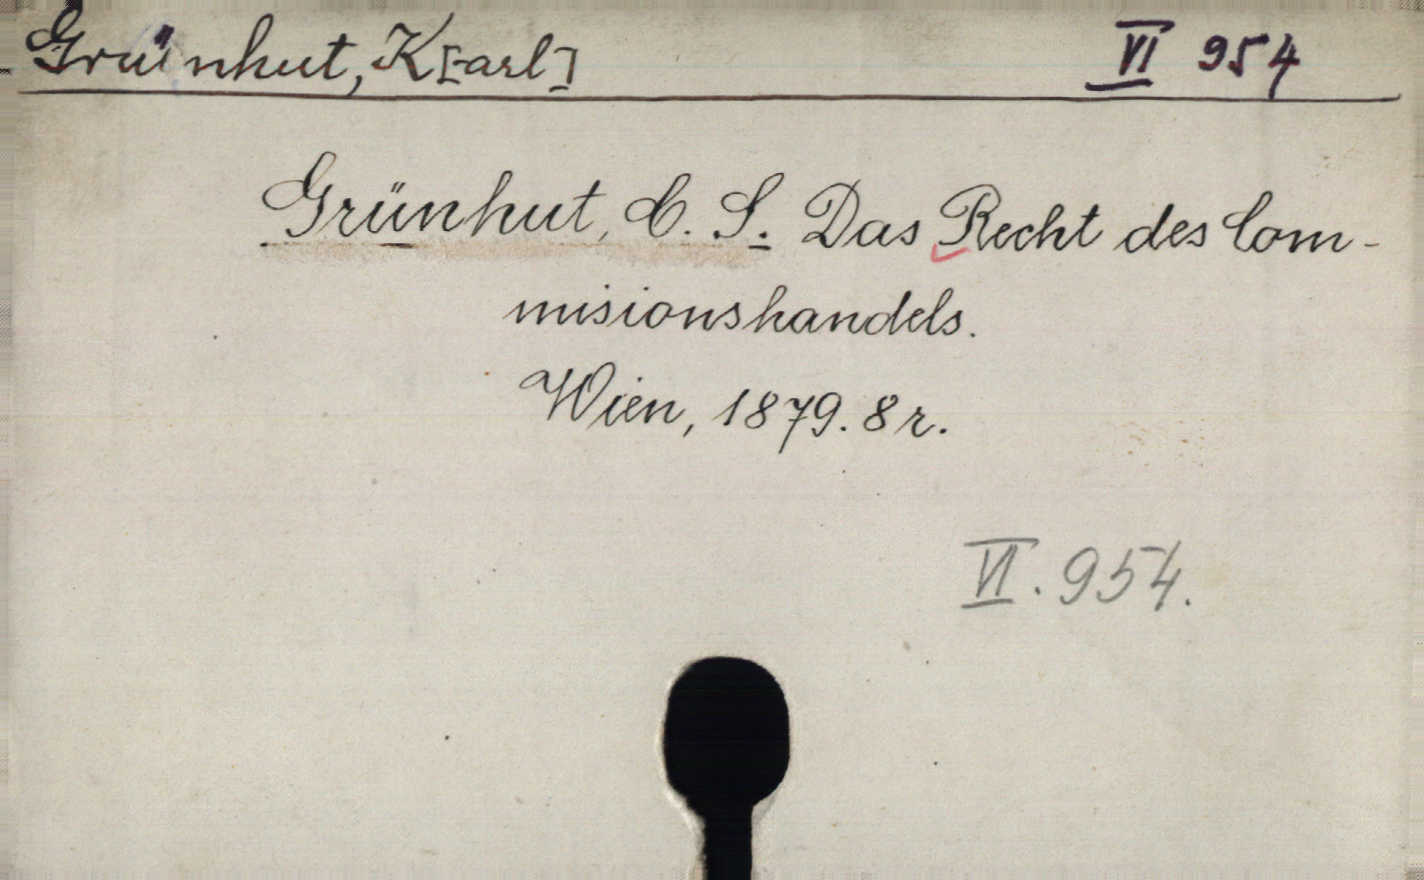 Grünhut, K[arl] VI 954
Grünhut, C. S. Das Recht des Com-
misionshandels.
Wien, 1879. 8r.
VI. 954.